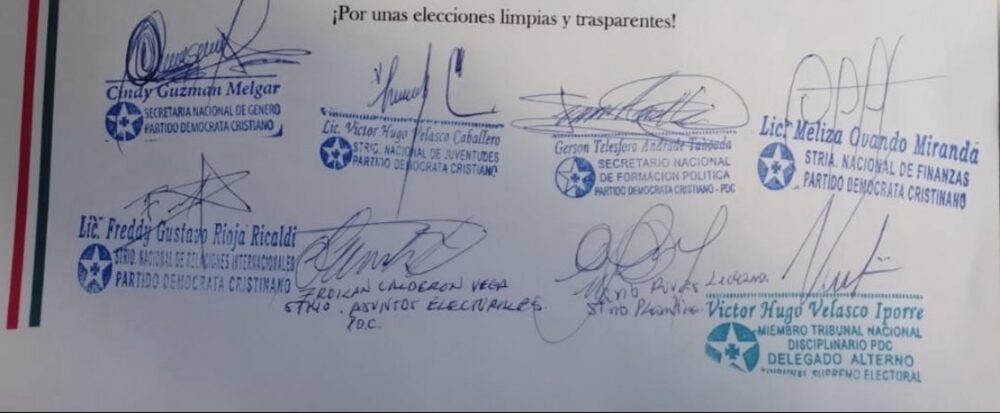 ¡Por unas elecciones limpias y trasparentes!
Cindy Guzman Melgar
SECRETARIA NACIONAL DE GENERO
PARTIDO DEMOCRATA CRISTIANO
Lic. Victor Hugo Velasco Caballero
STRIO. NACIONAL DE JUVENTUDES
PARTIDO DEMOCRATA CRISTIANO
Gerson Telesforo Andrade Taboada
SECRETARIO NACIONAL
DE FORMACION POLITICA
PARTIDO DEMOCRATA CRISTIANO - PDC
Lic. Meliza Ovando Miranda
STRIA. NACIONAL DE FINANZAS
PARTIDO DEMOCRATA CRISTINANO
Lic. Freddy Gustavo Rioja Ricaldi
STRIO. NACIONAL DE RELACIONES INTERNACIONALES
PARTIDO DEMOCRATA CRISTINANO
CALDERON VEGA
STRIO. ASUNTOS ELECTORALES
P.D.C.
Victor Hugo Velasco Iporre
MIEMBRO TRIBUNAL NACIONAL
DISCIPLINARIO PDC
DELEGADO ALTERNO
TRIBUNAL SUPREMO ELECTORAL